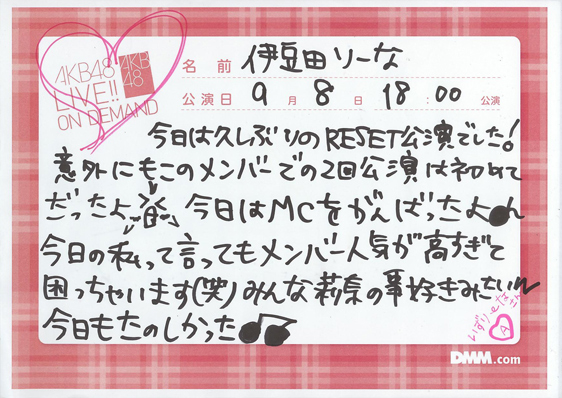 AKB48
LIVE!!
ON DEMAND
AKB
48
名前 伊豆田リーな
公演日 9月8日 18:00公演
今日は久しぶりのRESET公演でした!
意外にもこのメンバーでの2回公演は初めて
だったよ 今日はMCをがんばったよ♪
今日の私って言ってもメンバー人気が高すぎて
困っちゃいます(笑)みんな莉奈の事好きみたいw
今日もたのしかった♪♫
いずりーなだよ
A
DMM.com